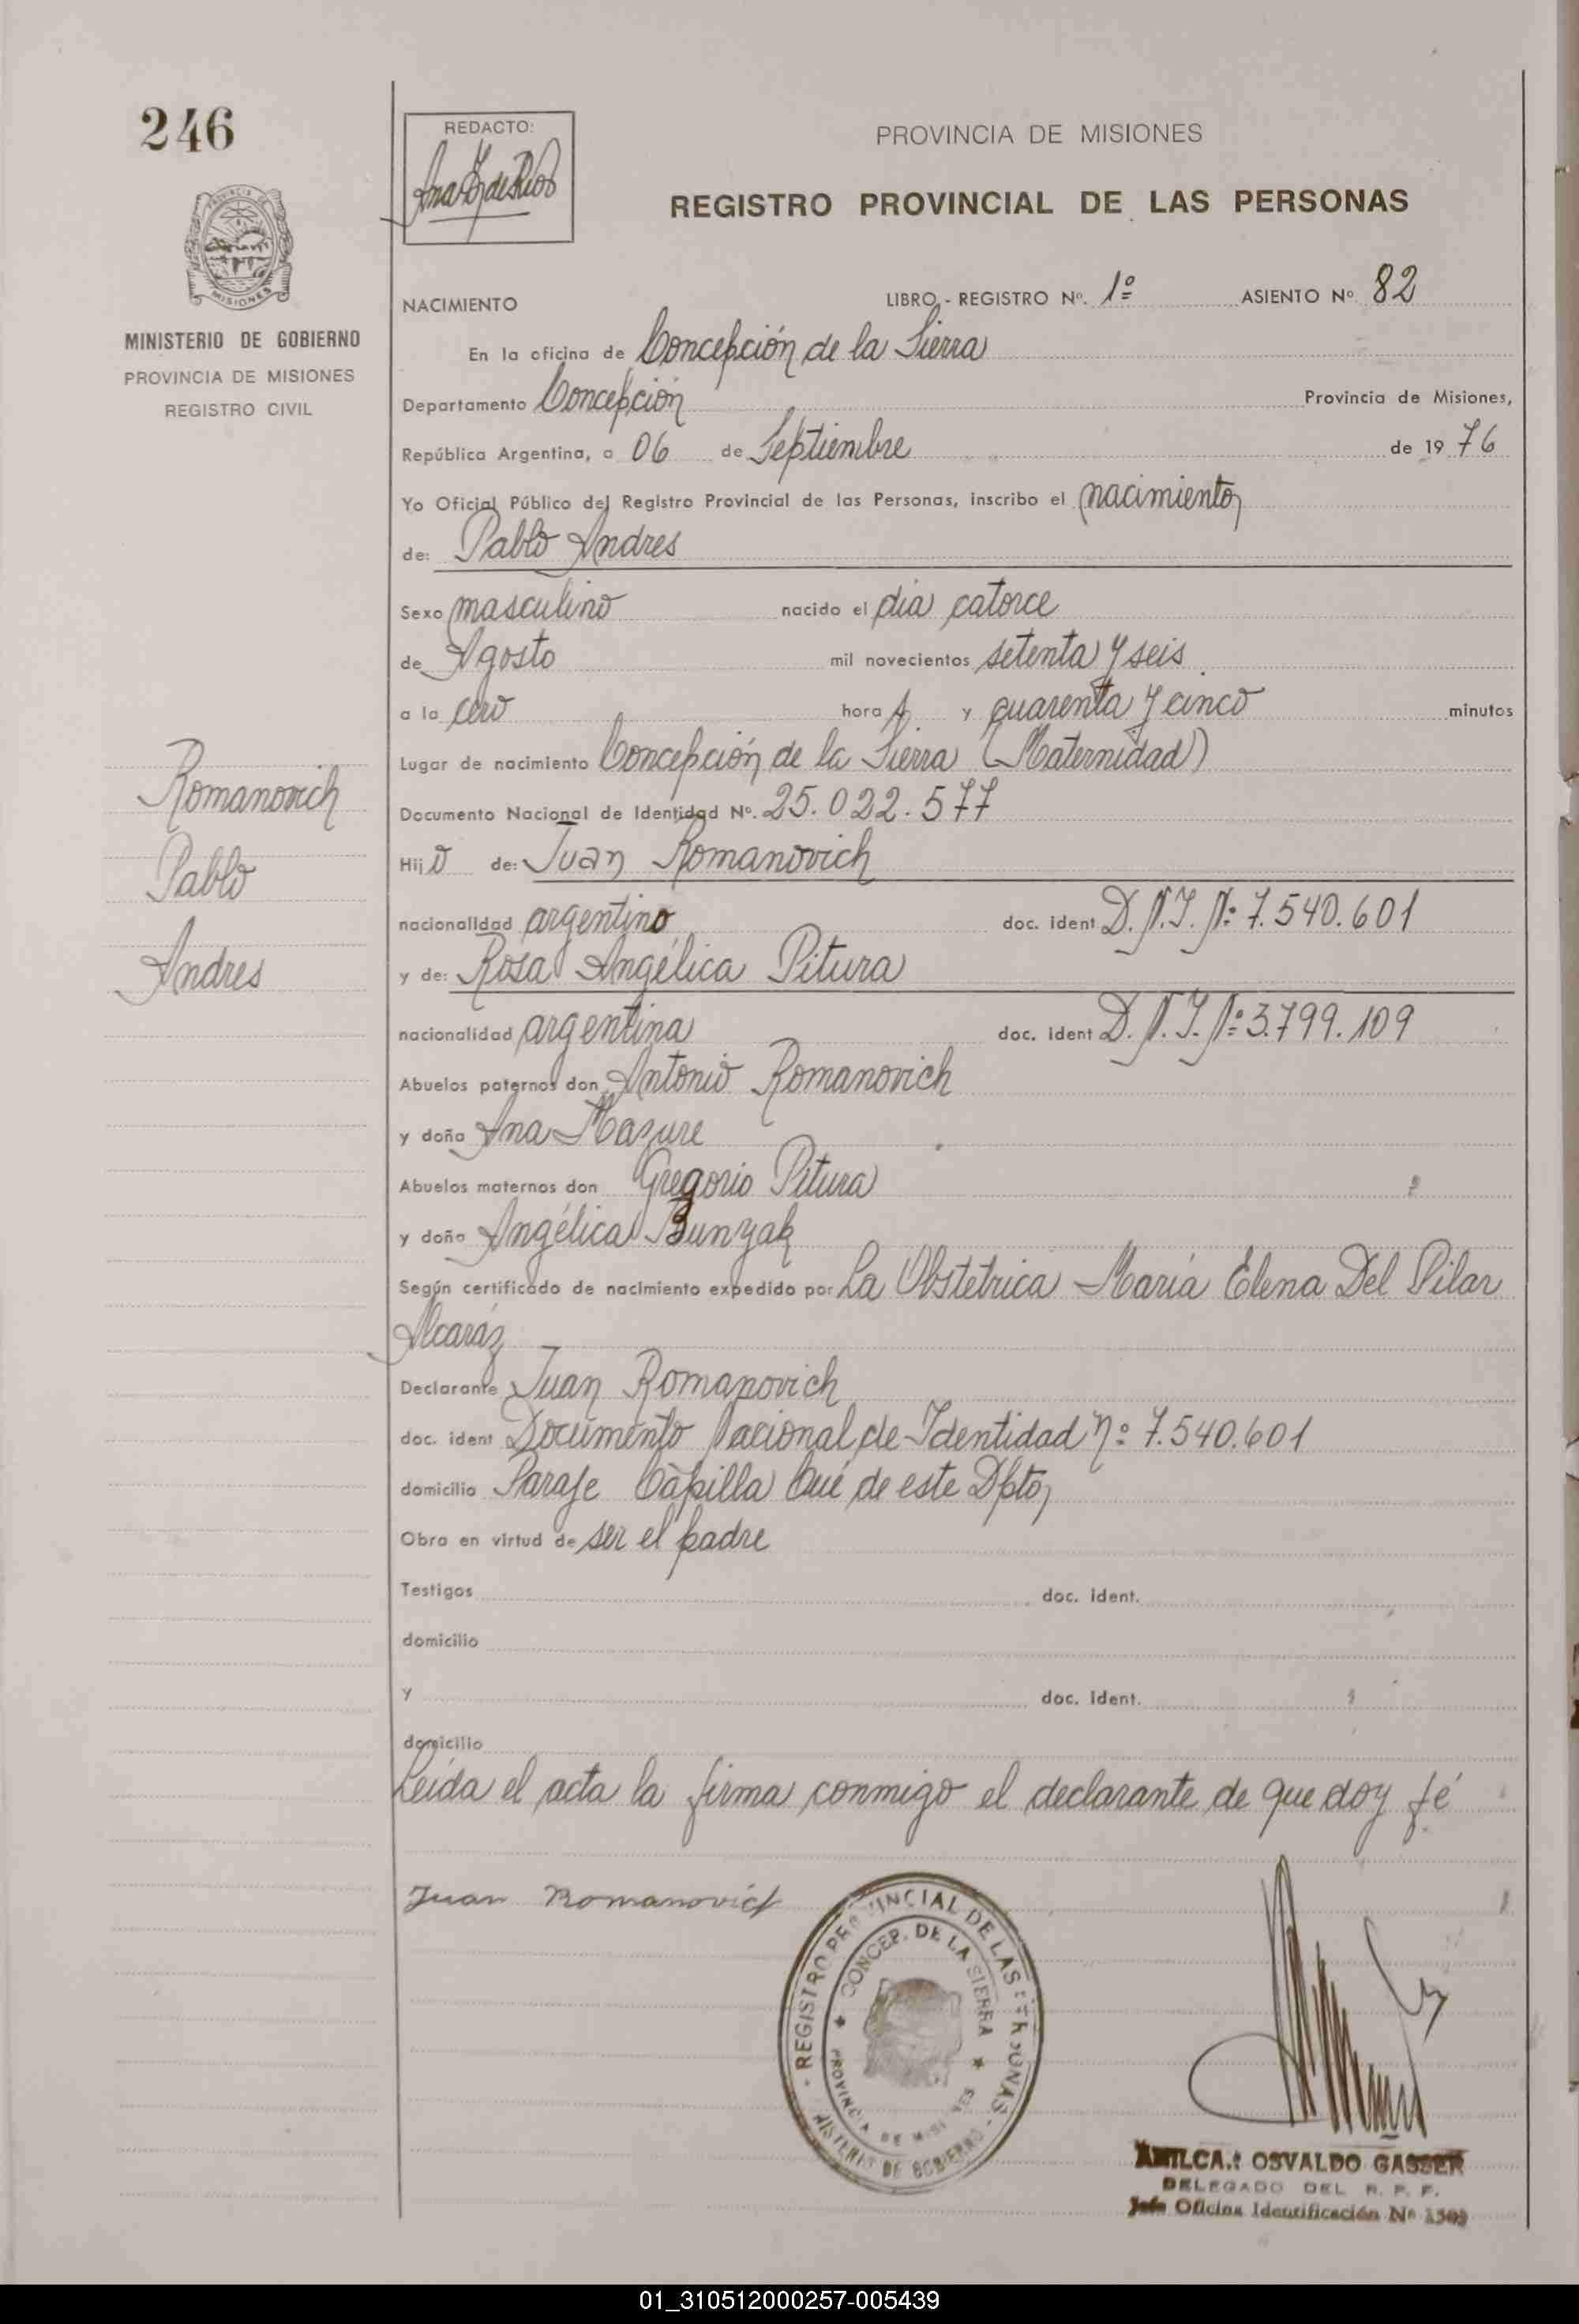 246
REDACTO:
PROVINCIA DE MISIONES
REGISTRO PROVINCIAL DE LAS PERSONAS
PROVINCIA DE
MISIONES
MINISTERIO DE GOBIERNO
PROVINCIA DE MISIONES
REGISTRO CIVIL
NACIMIENTO LIBRO - REGISTRO Nº. 1º ASIENTO Nº 82
En la oficina de Concepción de la Sierra
Departamento Concepción Provincia de Misiones,
República Argentina, a 06 de Septiembre de 1976
Yo Oficial Público del Registro Provincial de las Personas, inscribo el nacimiento
de: Pablo Andres
Sexo masculino nacido el día catorce
de Agosto mil novecientos setenta y seis
a la cero hora s y cuarenta y cinco minutos
Lugar de nacimiento Concepción de la Sierra (Maternidad)
Documento Nacional de Identidad Nº. 25.022.577
Hijo de: Juan Romanovich
nacionalidad argentino doc. ident D.N.I. Nº 7.540.601
y de: Rosa Angélica Pitura
nacionalidad argentina doc. ident D.N.I. Nº 3.799.109
Abuelos paternos don Antonio Romanovich
y doña Ana Masure
Abuelos maternos don Gregorio Pitura
y doña Angélica Bunyak
Según certificado de nacimiento expedido por La Obstétrica María Elena Del Pilar
Alcaráz
Declarante Juan Romanovich
doc. ident Documento Nacional de Identidad Nº 7.540.601
domicilio Paraje Capilla Cué de este Dpto,
Obra en virtud de ser el padre
Testigos doc. ident.
domicilio
y doc. ident.
domicilio
Leída el acta la firma conmigo el declarante de que doy fé
Romanovich
Pablo
Andres
Juan Romanovich
REGISTRO PROVINCIAL DE LAS PERSONAS
CONCEP. DE LA SIERRA
PROVINCIA DE MISIONES
OSVALDO GASSER
DELEGADO DEL R. P. P.
Jefe Oficina Identificación Nº
01_310512000257-005439